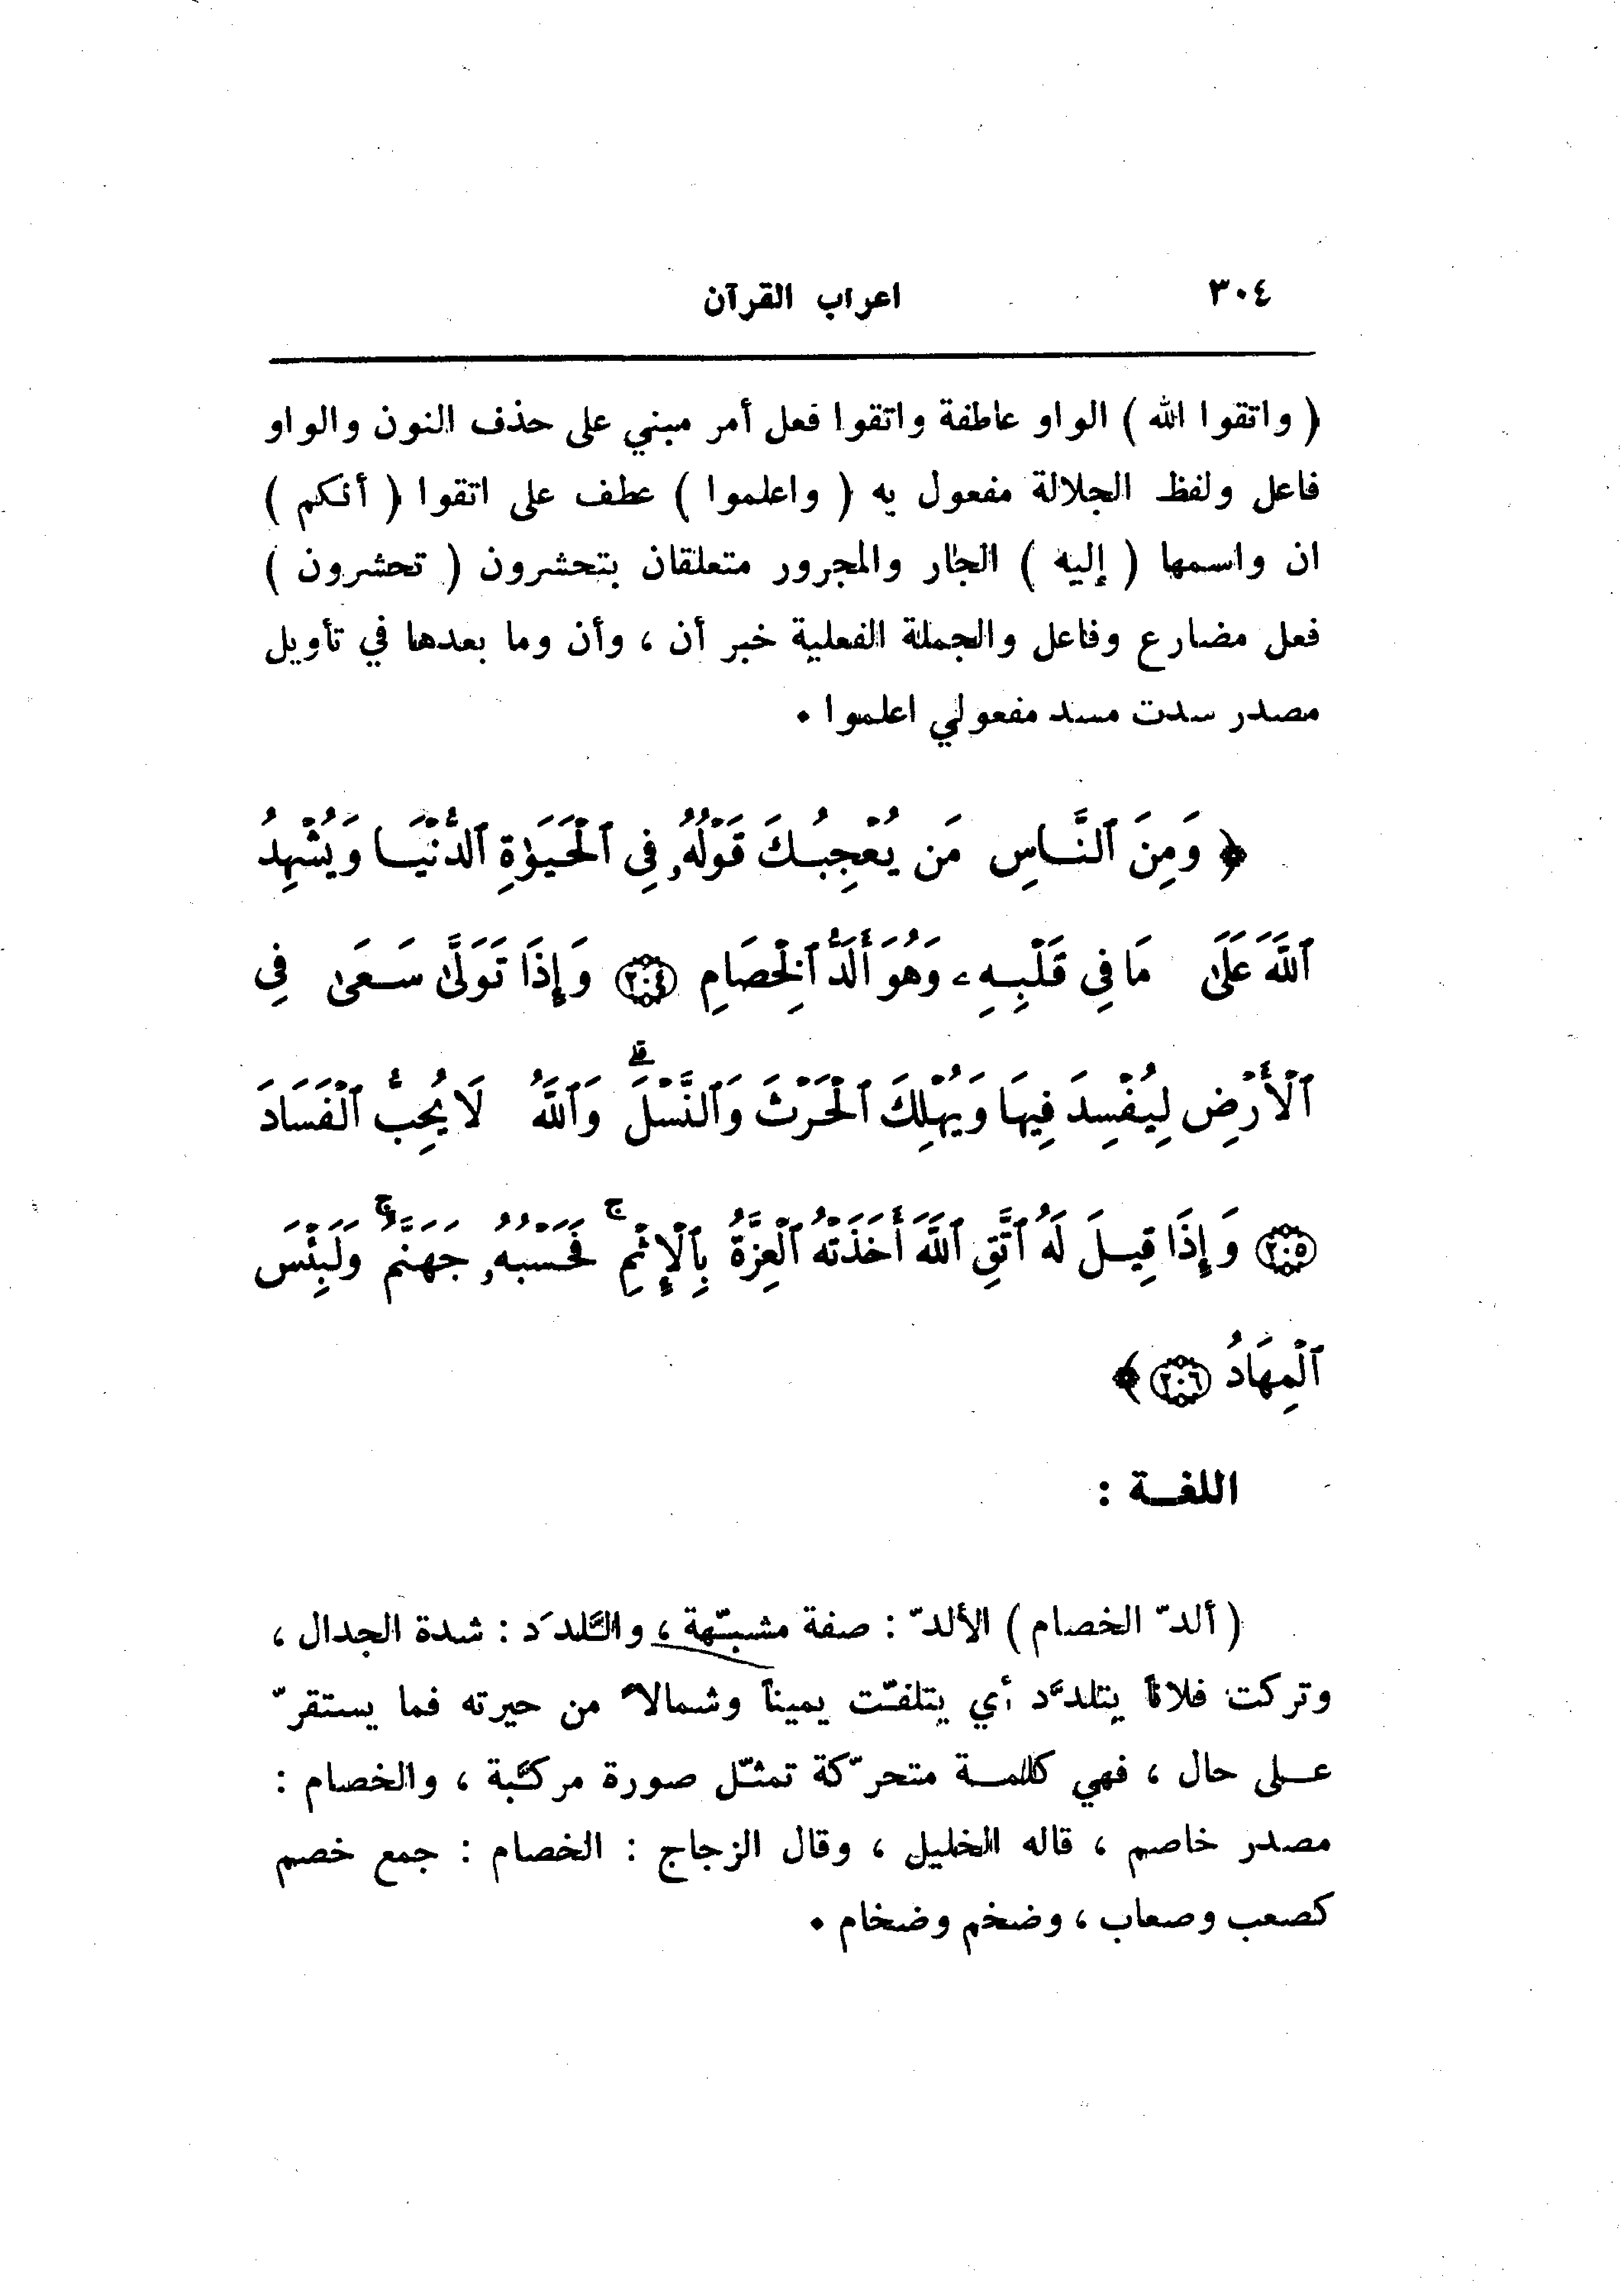 ٣٠٤
اعراب القرآن
( واتقوا الله ) الواو عاطفة واتقوا فعل أمر مبني على حذف النون والواو
فاعل ولفظ الجلالة مفعول به ( واعلموا ) عطف على اتقوا ( أنكم )
ان واسمها ( إليه ) الجار والمجرور متعلقان بتحشرون ( تحشرون )
فعل مضارع وفاعل والجملة الفعلية خبر أن ، وأن وما بعدها في تأويل
مصدر سدت مسد مفعولي اعلموا ٠
﴿ وَمِنَ ٱلنَّاسِ مَن يُعْجِبُكَ قَوْلُهُۥ فِى ٱلْحَيَوٰةِ ٱلدُّنْيَا وَيُشْهِدُ
ٱللَّهَ عَلَىٰ مَا فِى قَلْبِهِۦ وَهُوَ أَلَدُّ ٱلْخِصَامِ ٢٠٤ وَإِذَا تَوَلَّىٰ سَعَىٰ فِى
ٱلْأَرْضِ لِيُفْسِدَ فِيهَا وَيُهْلِكَ ٱلْحَرْثَ وَٱلنَّسْلَ ۗ وَٱللَّهُ لَا يُحِبُّ ٱلْفَسَادَ
٢٠٥ وَإِذَا قِيلَ لَهُ ٱتَّقِ ٱللَّهَ أَخَذَتْهُ ٱلْعِزَّةُ بِٱلْإِثْمِ ۚ فَحَسْبُهُۥ جَهَنَّمُ ۚ وَلَبِئْسَ
ٱلْمِهَادُ ٢٠٦ ﴾
اللغـة :
( ألدّ الخصام ) الألدّ : صفة مشبّهة ، واللَّدَد : شدة الجدال ،
وتركت فلاناً يتلدَّد أي يتلفّت يميناً وشمالاً من حيرته فما يستقرّ
عـلى حال ، فهي كلمـة متحرّكة تمثّل صورة مركّبة ، والخصام :
مصدر خاصم ، قاله الخليل ، وقال الزجاج : الخصام : جمع خصم
كصعب وصعاب ، وضخم وضخام ٠